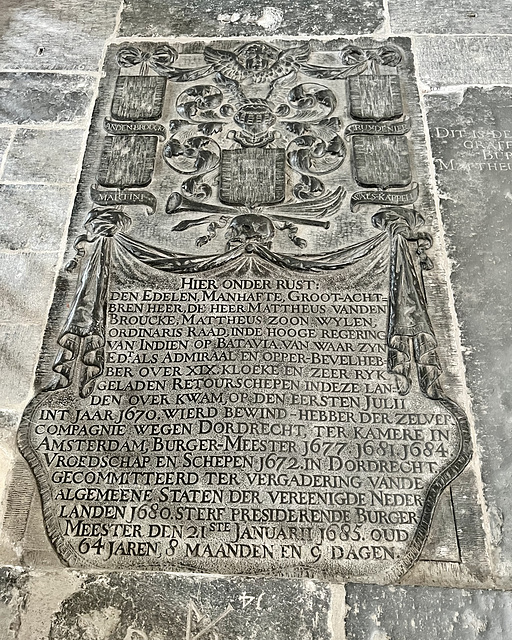 VANDENBROUCK
CRUYDENIER
MARTINI
WALS-KAPPEL
HIER ONDER RUST:
DEN EDELEN, MANHAFTE, GROOT-ACHT-
BREN HEER, DE HEER MATTHEUS VANDEN
BROUCKE, MATTHEUS ZOON WYLEN,
ORDINARIS RAAD, INDE HOOGE REGERING
VAN INDIEN OP BATAVIA. VAN WAAR ZYN
EDᵗ. ALS ADMIRAAL EN OPPER-BEVELHEB
BER OVER XIX. KLOEKE EN ZEER RYK
GELADEN RETOURSCHEPEN INDEZE LAN-
DEN OVER KWAM, OP DEN EERSTEN JULII
INT JAAR 1670, WIERD BEWIND-HEBBER DER ZELVER
COMPAGNIE WEGEN DORDRECHT, TER KAMERE IN
AMSTERDAM, BURGER-MEESTER 1677. 1681. 1684.
VROEDSCHAP EN SCHEPEN 1672. IN DORDRECHT,
GECOMMITTEERD TER VERGADERING VANDE
ALGEMEENE STATEN DER VEREENIGDE NEDER
LANDEN 1680. STERF PRESIDERENDE BURGER
MEESTER DEN 21STE JANUARII 1685. OUD
64 JAREN, 8 MAANDEN EN 9 DAGEN.
DIT IS DE
MATTHEU
14